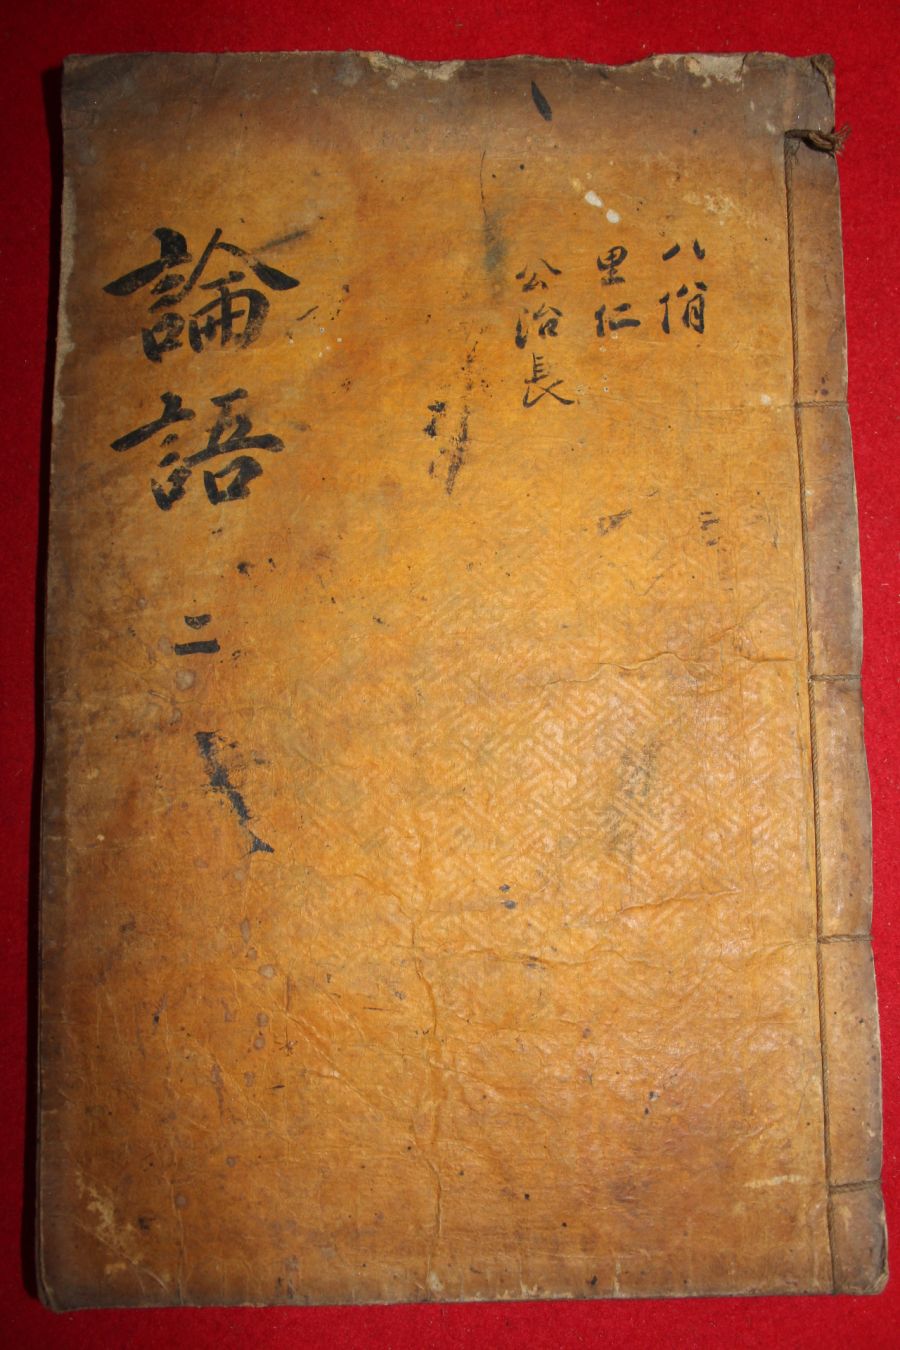 八佾
里仁
公冶長
論語
二